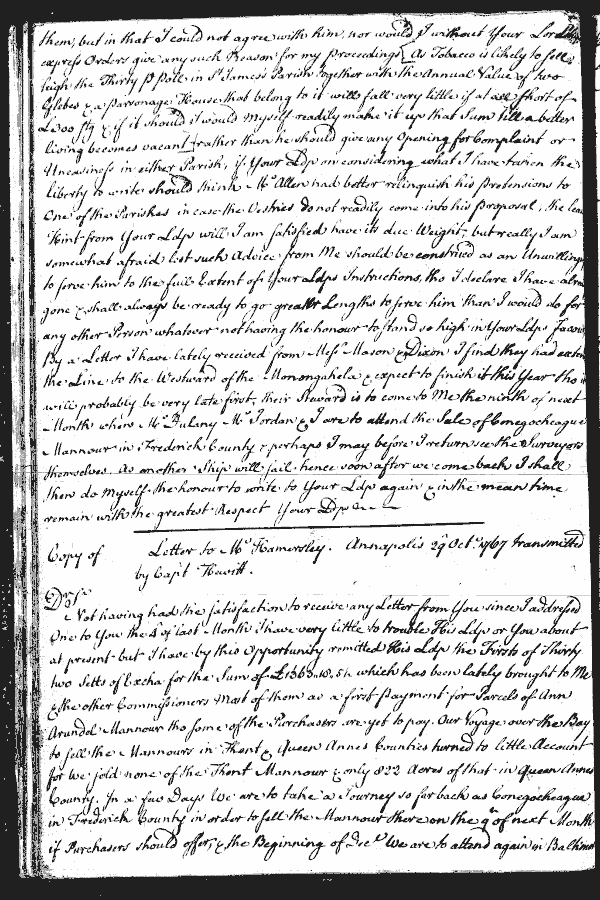 them, but in that I could not agree with him, nor would I without Your Lordps
express Orders give any such Reason for my Proceedings. As Tobacco is likely to sell
high the Thirty P Poll in St James's Parish together with the Annual Value of two
Glebes & a Parsonage House that belong to it will fall very little if at all short of
£300 Stg & if it should I would Myself readily make it up that Sum till a better
living becomes vacant rather than he should give any Opening for Complaint or
Uneasiness in either Parish, if Your Ldp on considering what I have taken the
liberty to write should think Mr Allen had better relinquish his Pretensions to
One of the Parishes in case the Vestries do not readily come into his Proposal, the least
Hint from Your Ldp will I am satisfied have its due Weight, but really I am
somewhat afraid lest such Advice from Me should be construed as an Unwillingn
to serve him to the full Extent of Your Ldps Instructions, tho I declare I have alrea
gone & shall always be ready to go greater Lengths to serve him than I would do for
any other Person whatever not having the honour to stand so high in Your Ldps Favour
By a Letter I have lately received from Messrs Mason & Dixon I find they had exten
the Line to the Westward of the Monongahela & expect to finish it this Year tho it
will probably be very late first, their Steward is to come to Me the ninth of next
Month when Mr Dulany Mr Jordan & I are to attend the Sale of Conegocheague
Mannour in Frederick County & perhaps I may before I return see the Surveyors
themselves. As another Ship will sail hence soon after we come back I shall
then do Myself the honour to write to Your Ldp again & in the mean time
remain with the greatest Respect Your Ldps &c
Copy of Letter to Mr Hamersley. Annapolis 29 Octr 1767 transmitted
by Capt Hewitt.
Dr Sr
Not having had the satisfaction to receive any Letter from You since I addressed
One to You the 4th of last Month I have very little to trouble His Ldp or You about
at present but I have by this Opportunity remitted His Ldp the Firsts of Thirty
two Setts of Excha for the Sum of £1363..10..5½ which has been lately brought to Me
& the other Commissioners Most of them as a first Payment for Parcels of Ann
Arundel Mannour tho some of the Purchasers are yet to pay. Our Voyage over the Bay
to sell the Mannours in Kent & Queen Annes Counties turned to little Account
for we sold none of the Kent Mannour & only 822 Acres of that in Queen Annes
County. In a few Days We are to take a Journey so far back as Conegocheague
in Frederick County in order to sell the Mannour there on the 9th of next Month
if Purchasers should offer, & the Beginning of Decr We are to attend again in Baltimo